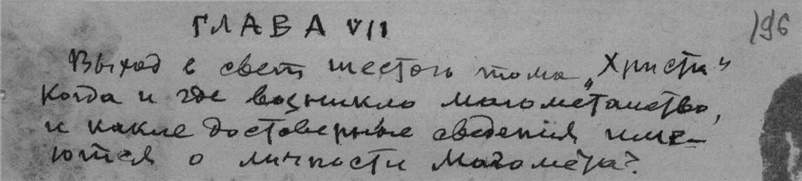 ГЛАВА VII
196
Выход в свет шестого тома „Христа"
Когда и где возникло магометанство,
и какие достоверные сведения име-
ются о личности Магомета?